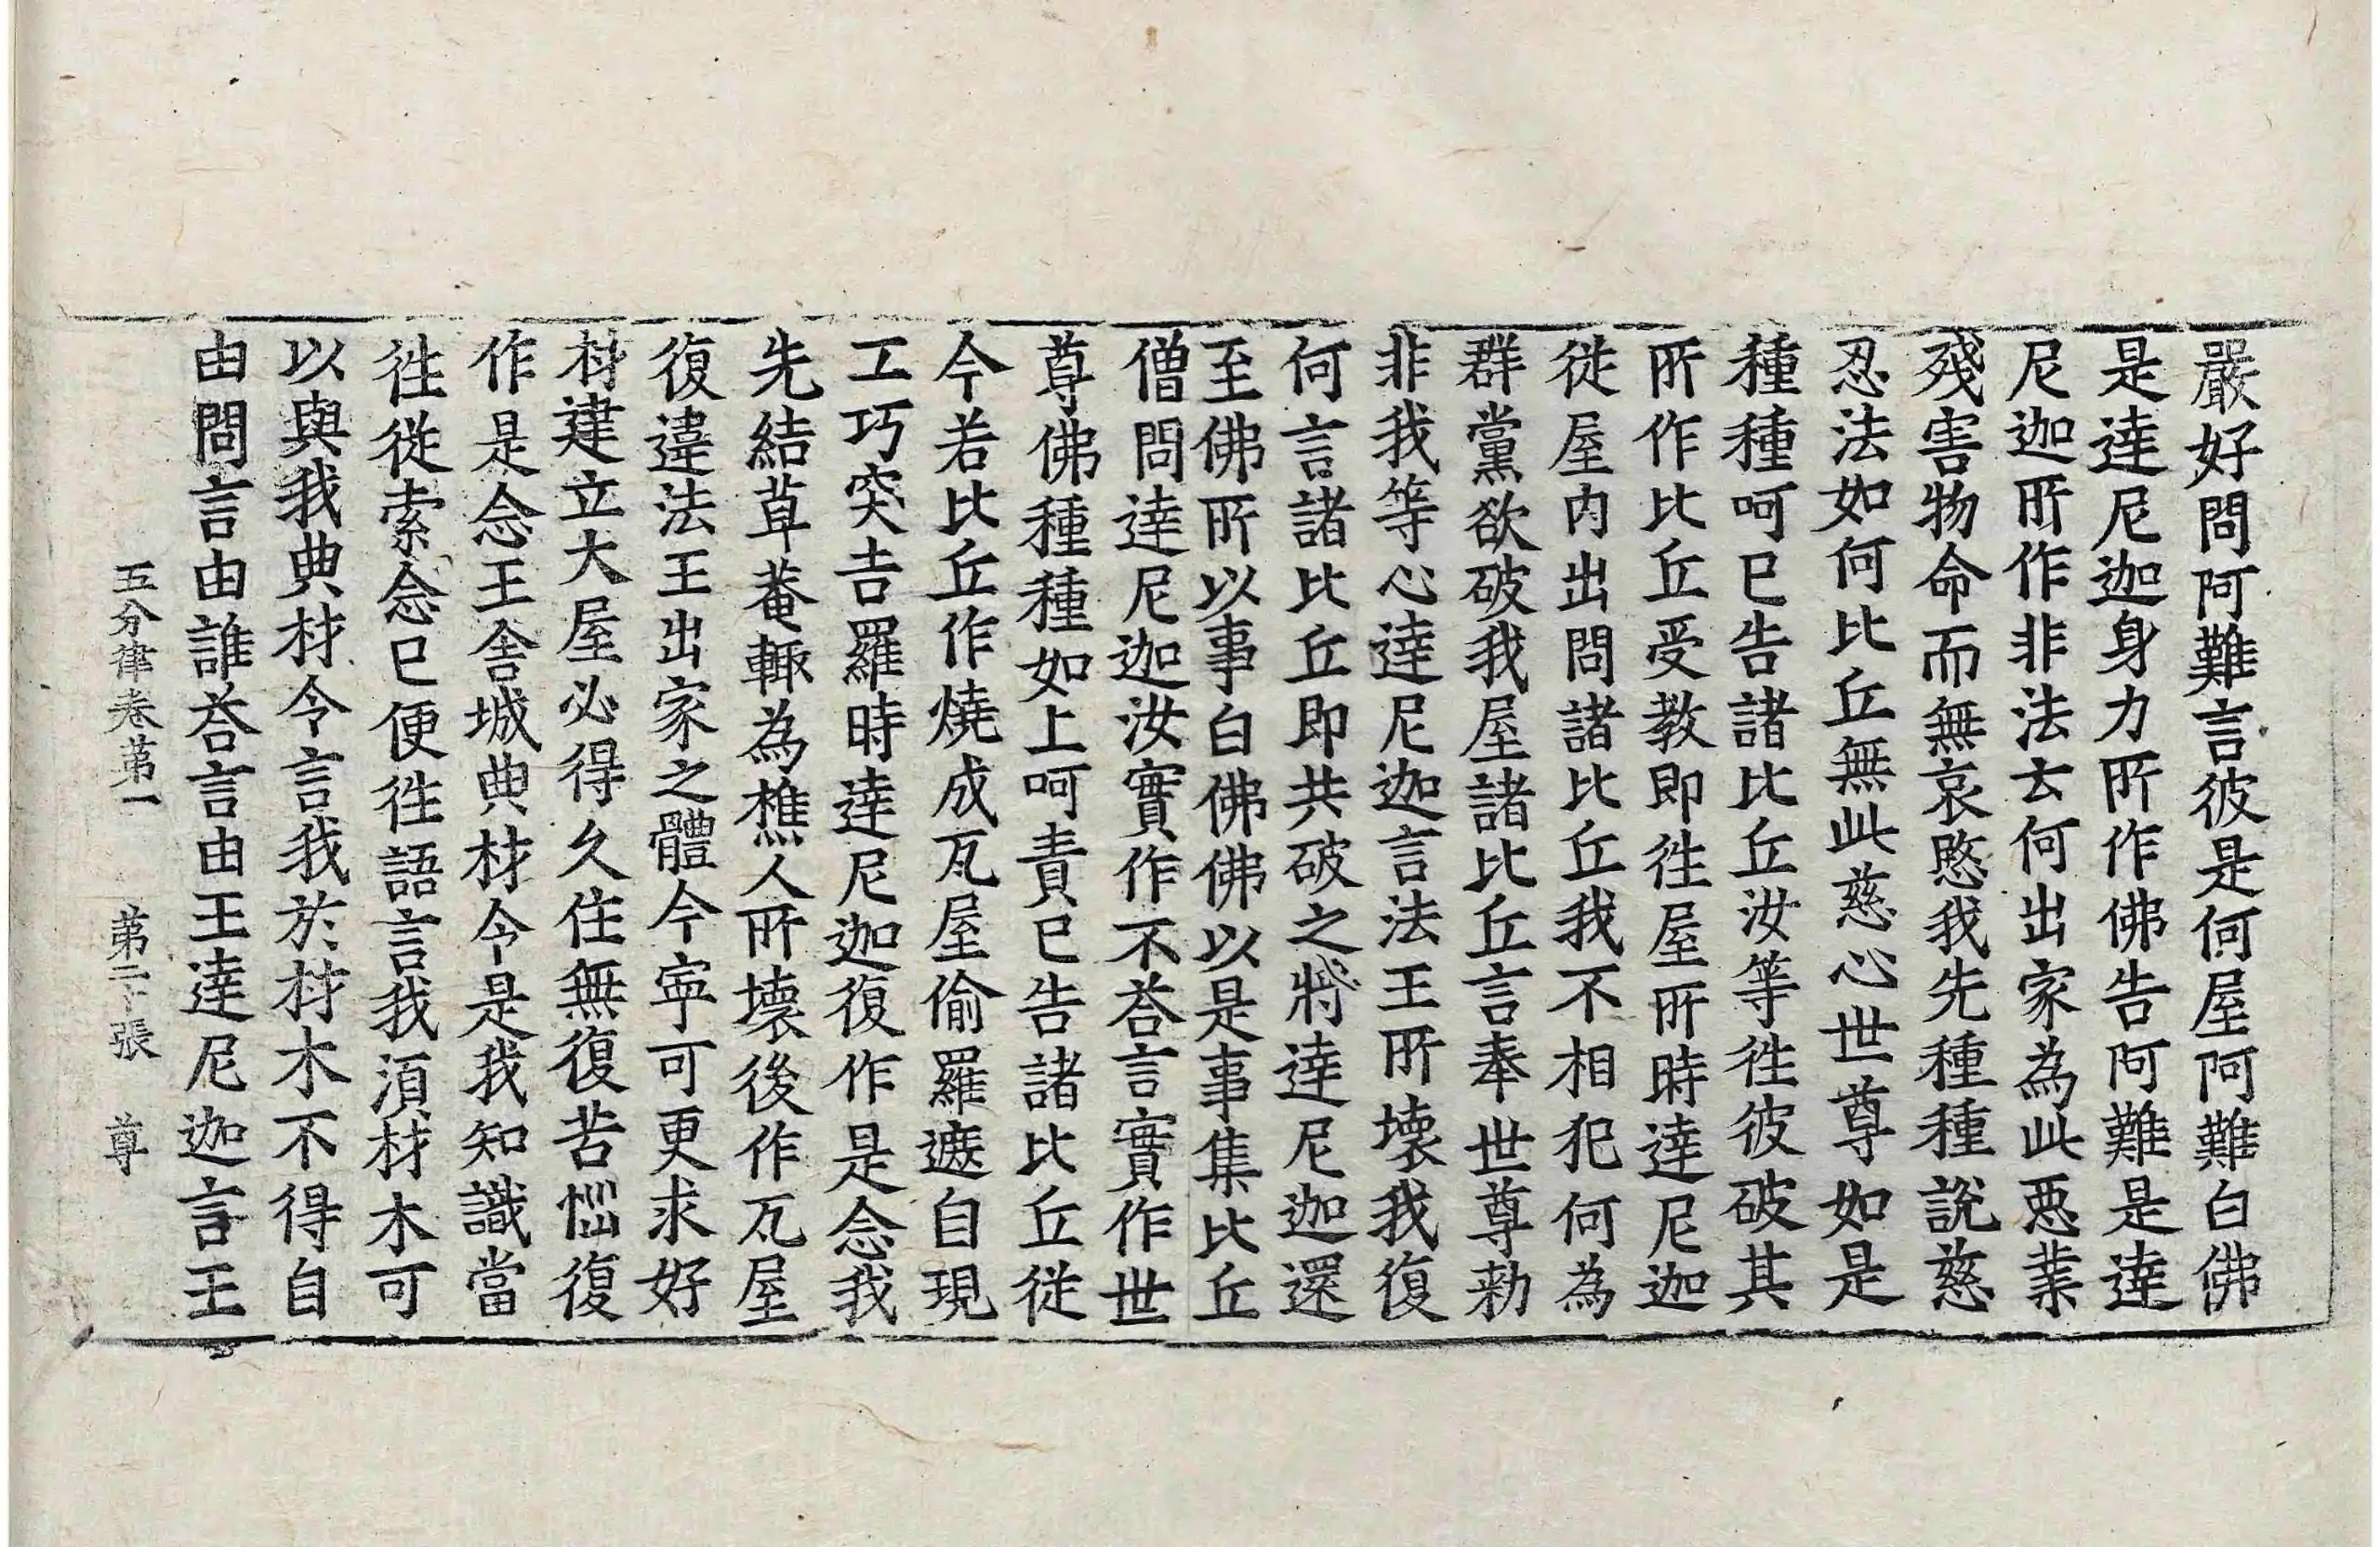 嚴好問阿難言彼是何屋阿難白佛
是達尼迦身力所作佛告阿難是達
尼迦所作非法云何出家為此惡業
殘害物命而無哀愍我先種種說慈
忍法如何比丘無此慈心世尊如是
種種呵已告諸比丘汝等往彼破其
所作比丘受教即往屋所時達尼迦
從屋內出問諸比丘我不相犯何為
群黨欲破我屋諸比丘言奉世尊勑
非我等心達尼迦言法王所壞我復
何言諸比丘即共破之將達尼迦還
至佛所以事白佛佛以是事集比丘
僧問達尼迦汝實作不荅言實作世
尊佛種種如上呵責已告諸比丘從
今若比丘作燒成瓦屋偷羅遮自現
工巧突吉羅時達尼迦復作是念我
先結草菴輙為樵人所壞後作瓦屋
復違法王出家之體今寧可更求好
材建立大屋必得久住無復苦惱復
作是念王舍城典材令是我知識當
往從索念已便往語言我湏材木可
以與我典材令言我於材木不得自
由問言由誰荅言由王達尼迦言王
五分律卷第一 第二十張 尊